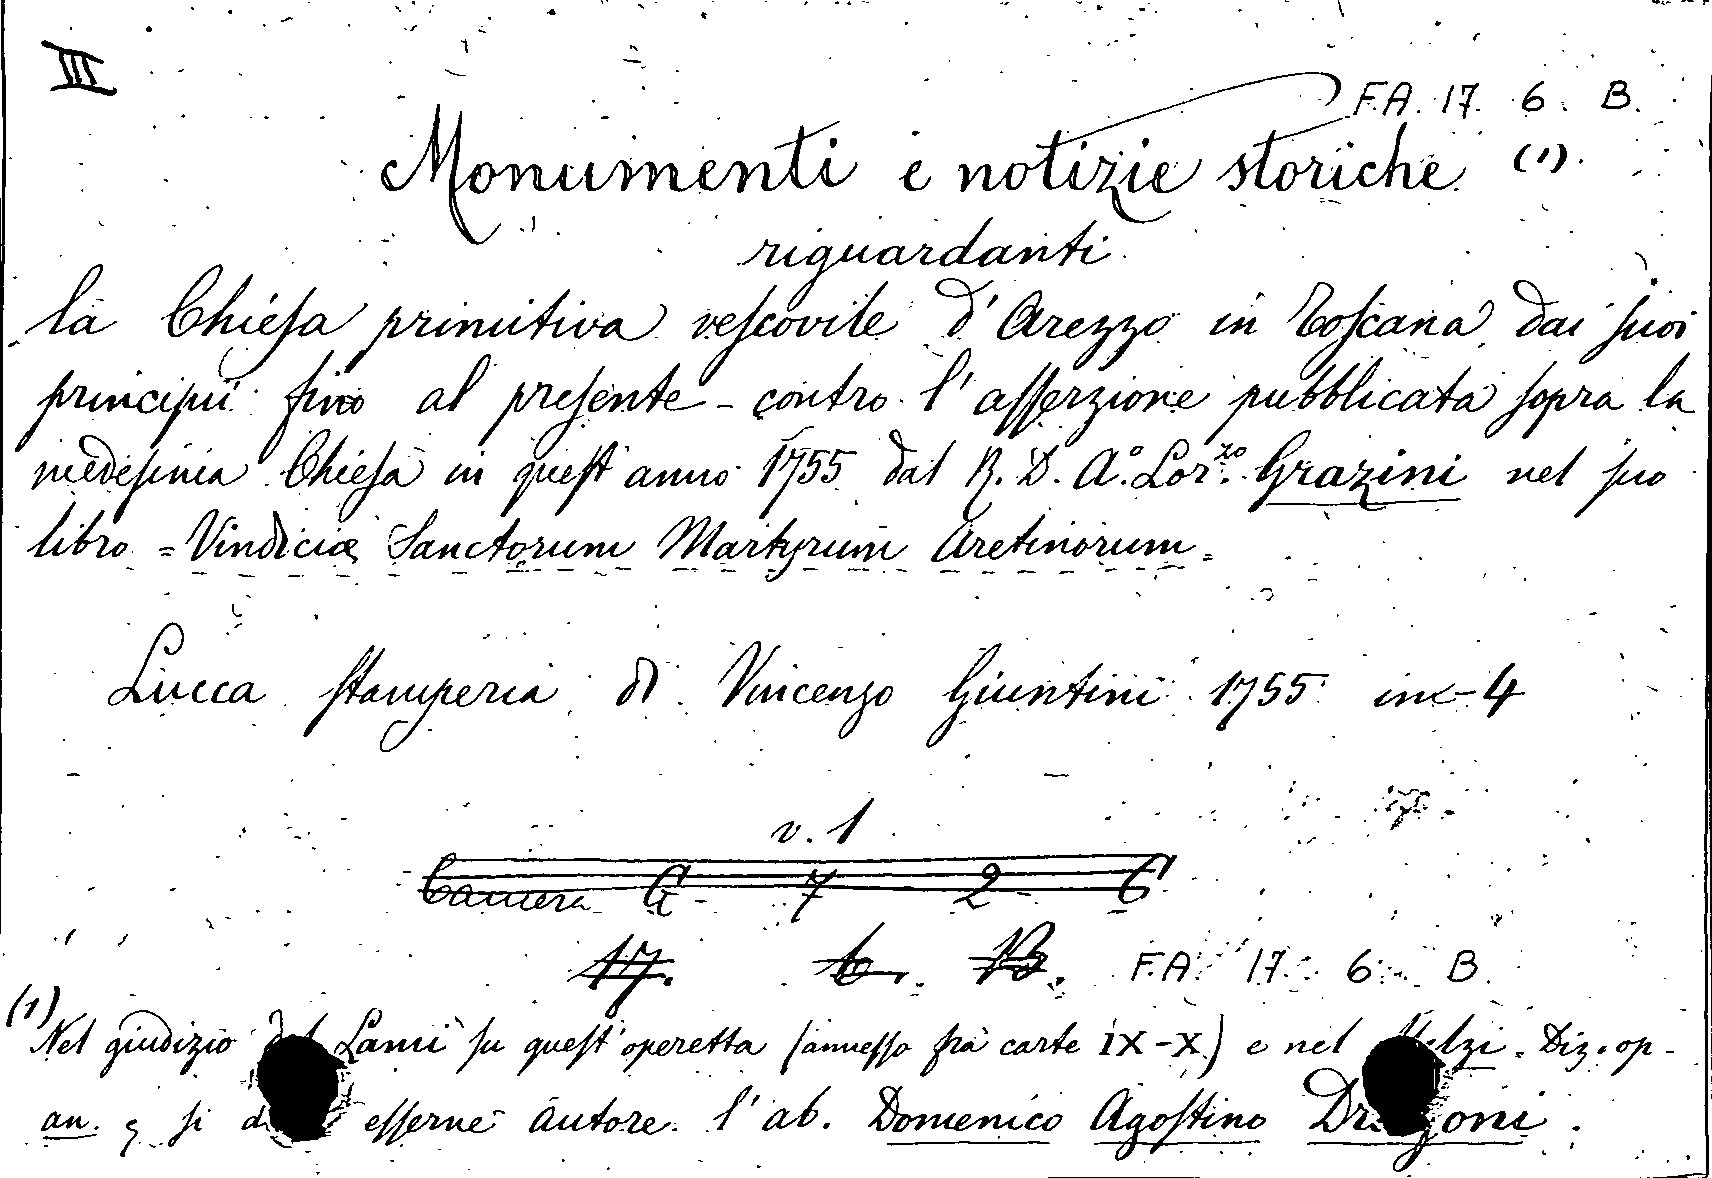 III
F.A. 17. 6. B.
Monumenti e notizie storiche (1).
riguardanti
la Chiesa primitiva vescovile d'Arezzo in Toscana dai suoi
principii fino al presente - contro l'asserzione pubblicata sopra la
medesima Chiesa in quest'anno 1755 dal R. D. A.° Lor.zo Grazini nel suo
libro = Vindiciæ Sanctorum Martyrum Aretinorum =
Lucca stamperia di Vincenzo Giuntini 1755 in-4
v. 1
Camera G 7 2 6
17. 6. B. F.A. 17. 6. B.
(1) Nel giudizio del Lami su quest'operetta (annesso frà carte IX-X) e nel Melzi. Diz. op-
an. si esserne autore l'ab. Domenico Agostino